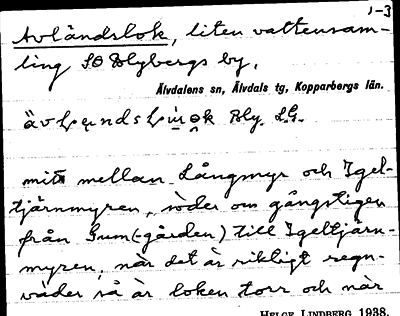 1-3
Avländslok, liten vattensam-
ling SO Blybergs by.
Älvdalens sn, Älvdals tg, Kopparbergs län.
Bly. L.G.
mitt mellan Långmyr och Igel-
tjärnmyren, söder om gångstigen
från Gum(-gården) till Igeltjärn-
myren, när det är riktigt regn-
väder så är loken torr och när
HELGE LINDBERG 1938.